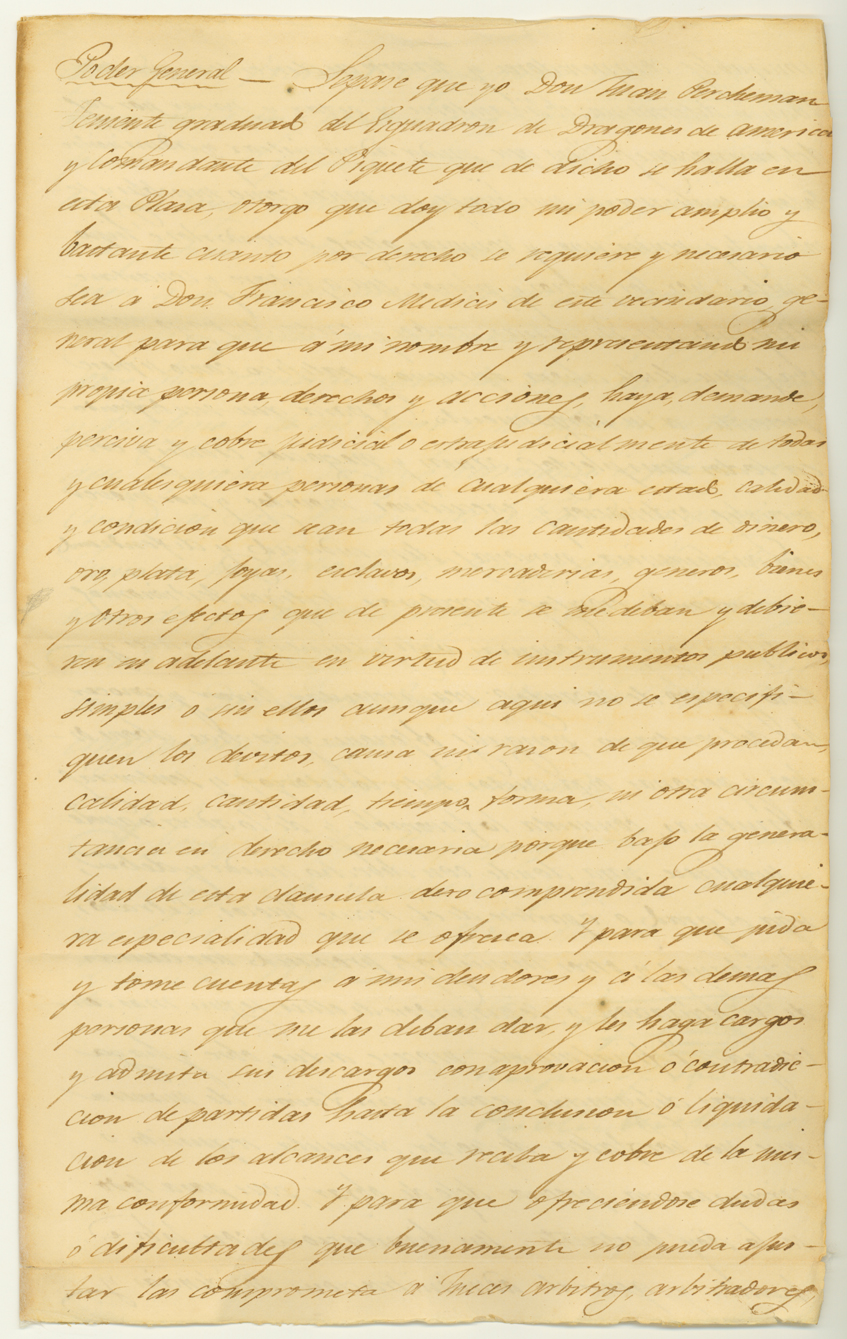 Poder General — Sepase que yo Don Juan Percheman
Teniente graduado del Esquadron de Dragones de America
y Comandante del Piquete que de dicho se halla en
esta Plasa, otorgo que doy todo mi poder amplio y
bastante cuanto por derecho se requiere y necesario
sea a Don. Francisco Medicis de este vecindario, ge-
neral para que á mi nombre y representando mi
propia persona, derechos y acciones, haya, demande,
perciva y cobre judicial o extrajudicialmente de todas
y cualesquiera personas de cualquiera estado, calidad
y condicion que sean todas las cantidades de dinero,
oro, plata, joyas, esclavos, mercaderias, generos, bienes
y otros efectos que de presente se me deban y debie-
ren en adelante en virtud de instrumentos publicos,
simples o sin ellos aunque aqui no se especifi-
quen los devitos, causa ni rason de que procedan,
calidad, cantidad, tiempo, forma, ni otra circuns-
tancia en derecho necesaria porque bajo la genera-
lidad de esta clausula dexo comprendida cualquie-
ra especialidad que se ofresca. Y para que pida
y tome cuentas á mis deudores y á las demas
personas que me las deban dar, y les haga cargos
y admita sus descargos con aprovacion ó contradic-
cion de partidas hasta la conclusion ó liquida-
cion de los alcances que reciba y cobre de la mis-
ma conformidad. Y para que ofreciendose dudas
ó dificultades que buenamente no pueda ajus-
tar las comprometa a Jueces arbitros, arbitradores,